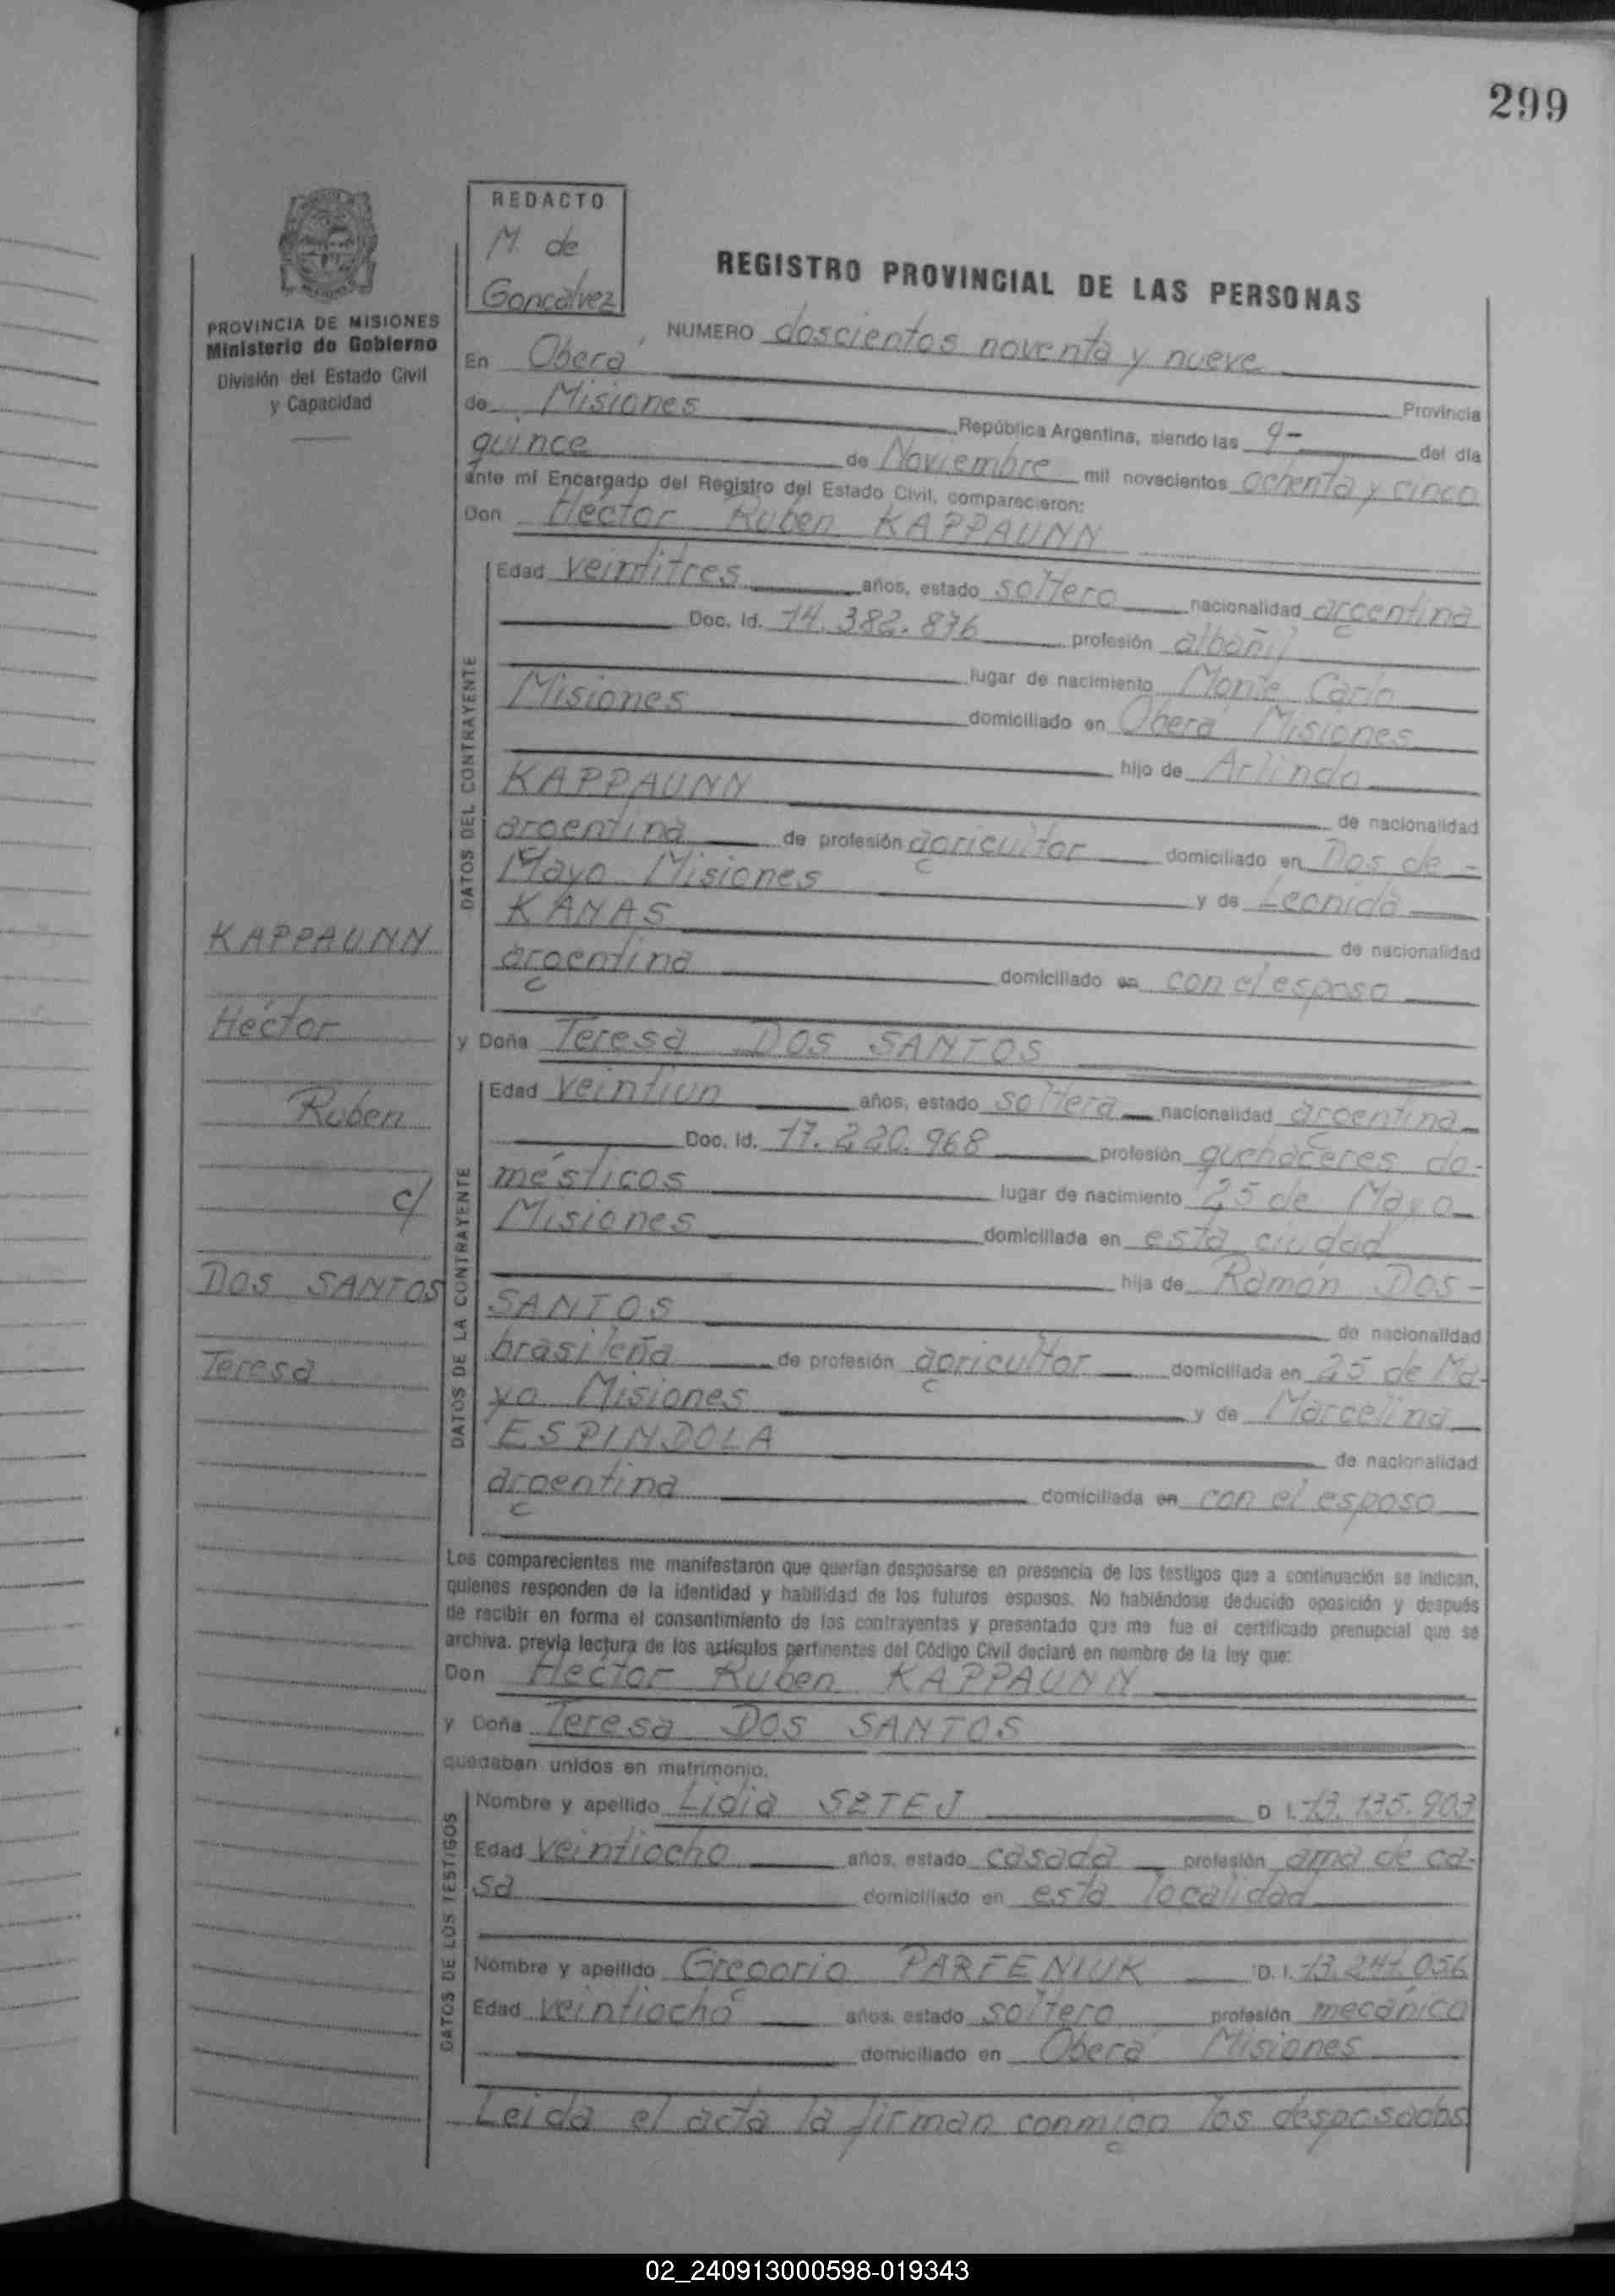 299
REDACTO
M. de
Goncalvez
REGISTRO PROVINCIAL DE LAS PERSONAS
PROVINCIA DE MISIONES
Ministerio de Gobierno
División del Estado Civil
y Capacidad
NUMERO doscientos noventa y nueve
En Oberá Provincia
de Misiones República Argentina, siendo las 9- del día
quince de Noviembre mil novecientos ochenta y cinco
ante mí Encargado del Registro del Estado Civil, comparecieron:
Don Héctor Ruben KAPPAUNN
DATOS DEL CONTRAYENTE
Edad veintitres años, estado soltero nacionalidad argentina
Doc. Id. 14.382.876 profesión albañil
lugar de nacimiento Monte Carlo
Misiones domiciliado en Oberá Misiones
hijo de Arlindo
KAPPAUNN de nacionalidad
argentina de profesión agricultor domiciliado en Dos de -
Mayo Misiones y de Leonida
KANAS de nacionalidad
argentina domiciliado en con el esposo
y Doña Teresa DOS SANTOS
DATOS DE LA CONTRAYENTE
Edad veintiun años, estado soltera nacionalidad argentina
Doc. Id. 17.220.968 profesión quehaceres do-
mésticos lugar de nacimiento 25 de Mayo
Misiones domiciliada en esta ciudad
hija de Ramón DOS -
SANTOS de nacionalidad
brasileña de profesión agricultor domiciliada en 25 de Ma-
yo Misiones y de Marcelina
ESPINDOLA de nacionalidad
argentina domiciliada en con el esposo
KAPPAUNN
Héctor
Ruben
c/
DOS SANTOS
Teresa
Los comparecientes me manifestaron que querían desposarse en presencia de los testigos que a continuación se indican,
quienes responden de la identidad y habilidad de los futuros esposos. No habiéndose deducido oposición y después
de recibir en forma el consentimiento de los contrayentes y presentado que me fue el certificado prenupcial que se
archiva. previa lectura de los artículos pertinentes del Código Civil declaré en nombre de la ley que:
Don Héctor Ruben KAPPAUNN
y Doña Teresa DOS SANTOS
quedaban unidos en matrimonio.
DATOS DE LOS TESTIGOS
Nombre y apellido Lidia SZTEJ D I. 13.135.903
Edad veintiocho años, estado casada profesión ama de ca-
sa domiciliado en esta localidad
Nombre y apellido Gregorio PARFENIUK D. I. 13.241.056
Edad veintiocho años, estado soltero profesión mecánico
domiciliado en Oberá Misiones
Leida el acta la firman conmigo los desposados
02_240913000598-019343